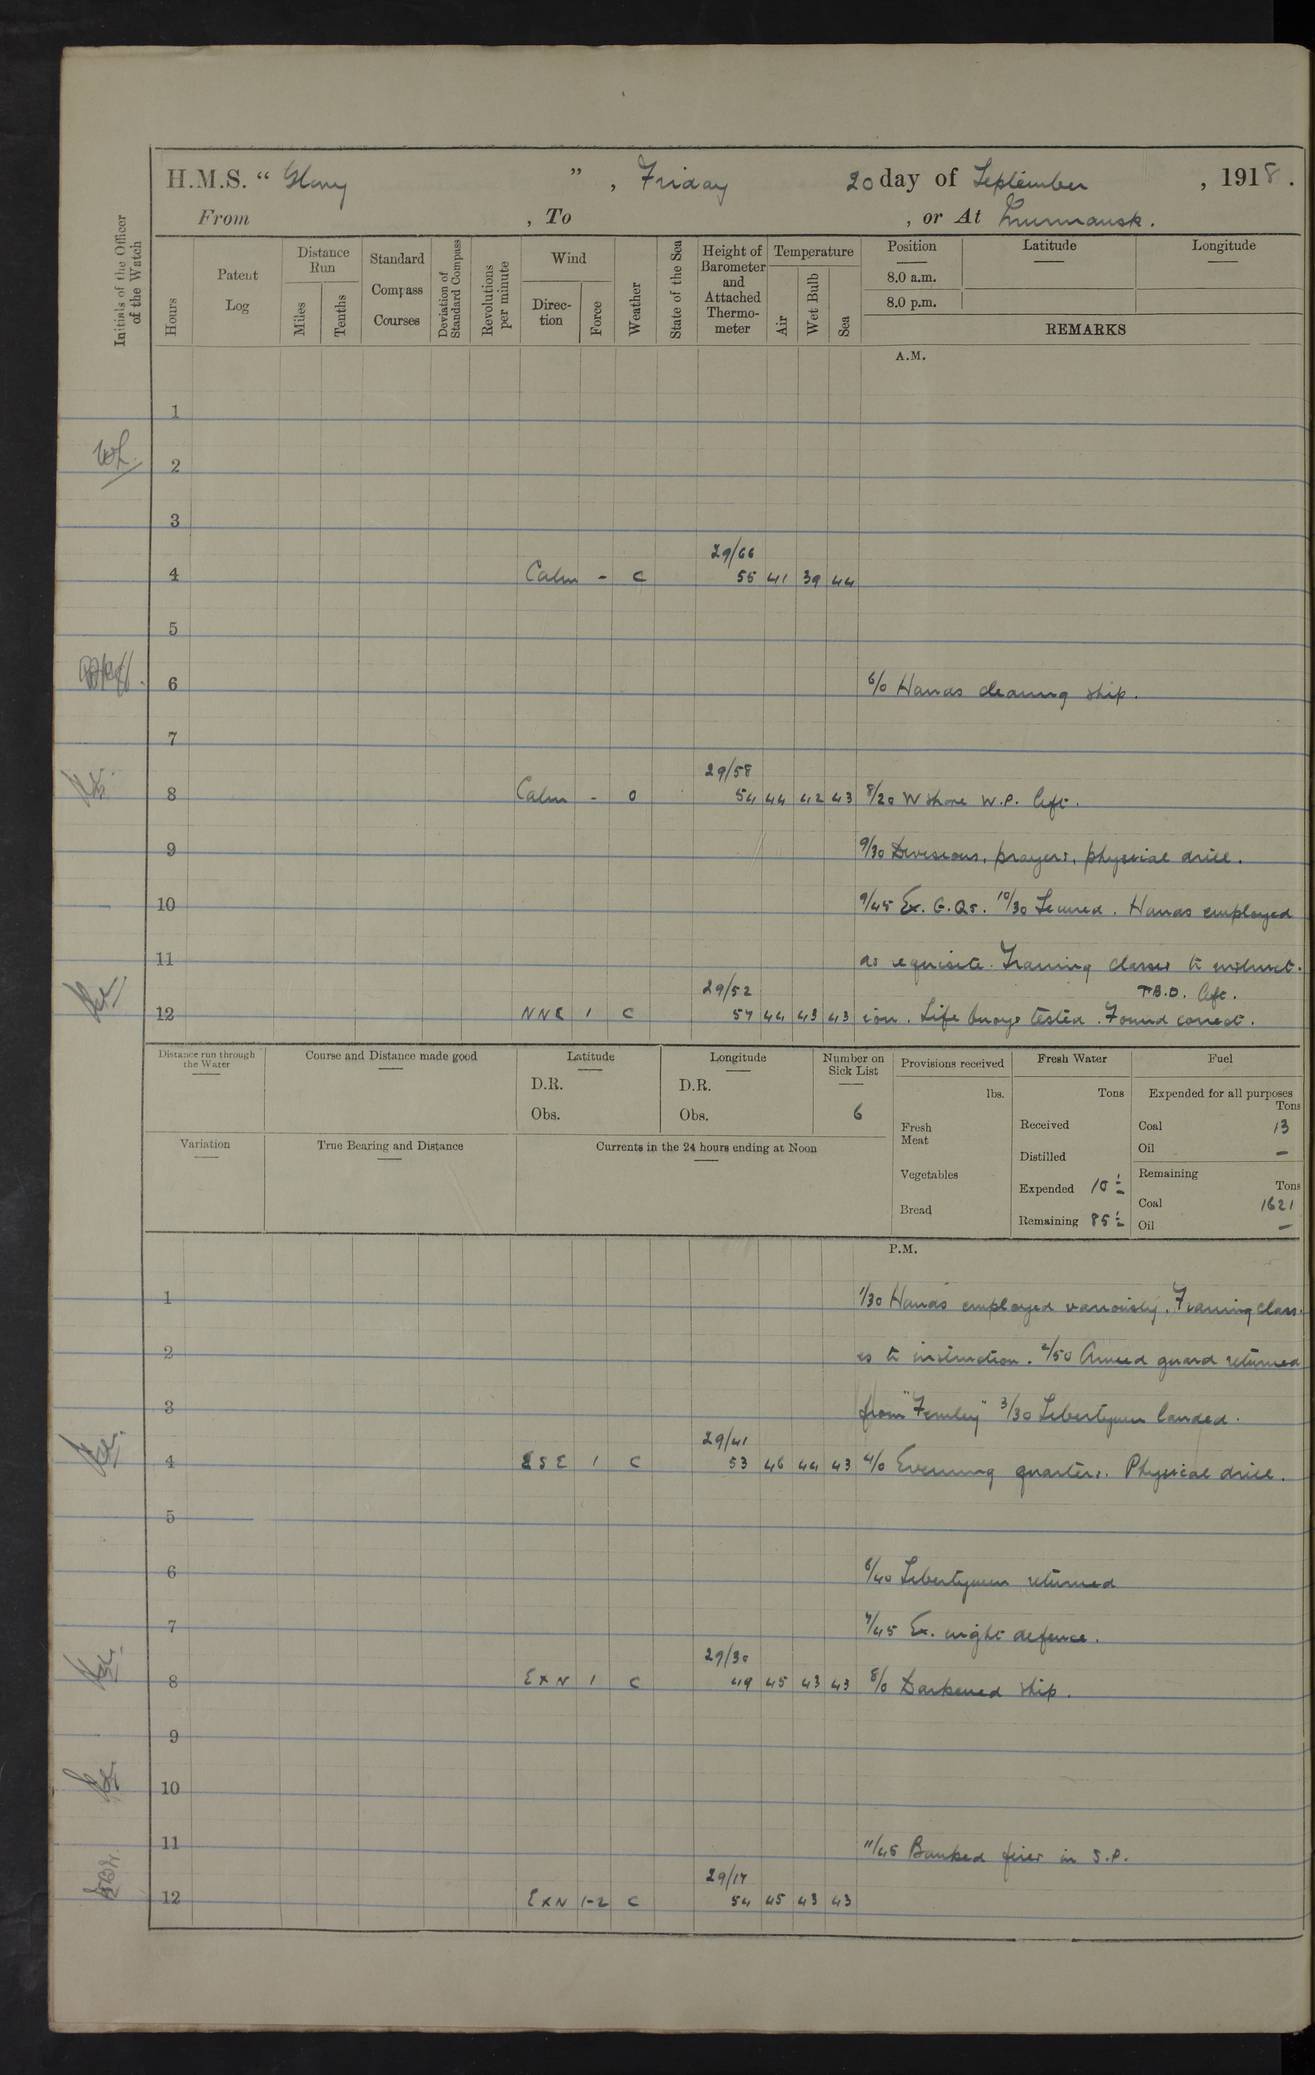 H.M.S. “ Glory ” , Friday 20 day of September , 1918 .
From , To , or At Murmansk .
Initials of the Officer of the Watch
Hours
Patent Log
Distance Run
Miles
Tenths
Standard Compass Courses
Deviation of Standard Compass
Revolutions per minute
Wind
Direc-tion
Force
Weather
State of the Sea
Height of Barometer and Attached Thermo-meter
Temperature
Air
Wet Bulb
Sea
Position
Latitude
Longitude
8.0 a.m.
8.0 p.m.
REMARKS
A.M.
1
2
3
29/66
4 Calm - c 55 41 39 44
5
6 6/0 Hands cleaning ship.
7
29/58
8 Calm - o 54 44 42 43 8/20 W shore W.P. left.
9 9/30 Divisions, prayers, physical drill.
10 9/45 Ex. G.Qs. 10/30 Secured. Hands employed
11 as requisite. Training classes to instruct-
29/52 T.B.D. left.
12 NNE 1 c 57 44 43 43 ion. Life buoys tested. Found correct.
Distance run through the Water
Course and Distance made good
Latitude
D.R.
Obs.
Longitude
D.R.
Obs.
Number on Sick List
6
Provisions received
lbs.
Fresh Meat
Vegetables
Bread
Fresh Water
Tons
Received
Distilled
Expended 10 ½
Remaining 85 ½
Fuel
Expended for all purposes
Tons
Coal 13
Oil —
Remaining
Tons
Coal 1621
Oil —
Variation
True Bearing and Distance
Currents in the 24 hours ending at Noon
P.M.
1 1/30 Hands employed variously. Training class-
2 es to instruction. 2/50 Armed guard returned
3 from "Fernley" 3/30 Libertymen landed.
29/41
4 ESE 1 c 53 46 44 43 4/0 Evening quarters. Physical drill.
5
6 6/40 Libertymen returned
7 7/45 Ex. night defence.
29/30
8 ExN 1 c 49 45 43 43 8/0 Darkened ship.
9
10
11 11/45 Banked fires in S.P.
29/17
12 ExN 1-2 c 54 45 43 43